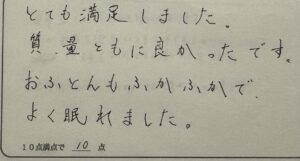 とても満足しました。
質.量ともに良かったです。
おふとんもふかふかで
よく眠れました。
10点満点で 10 点